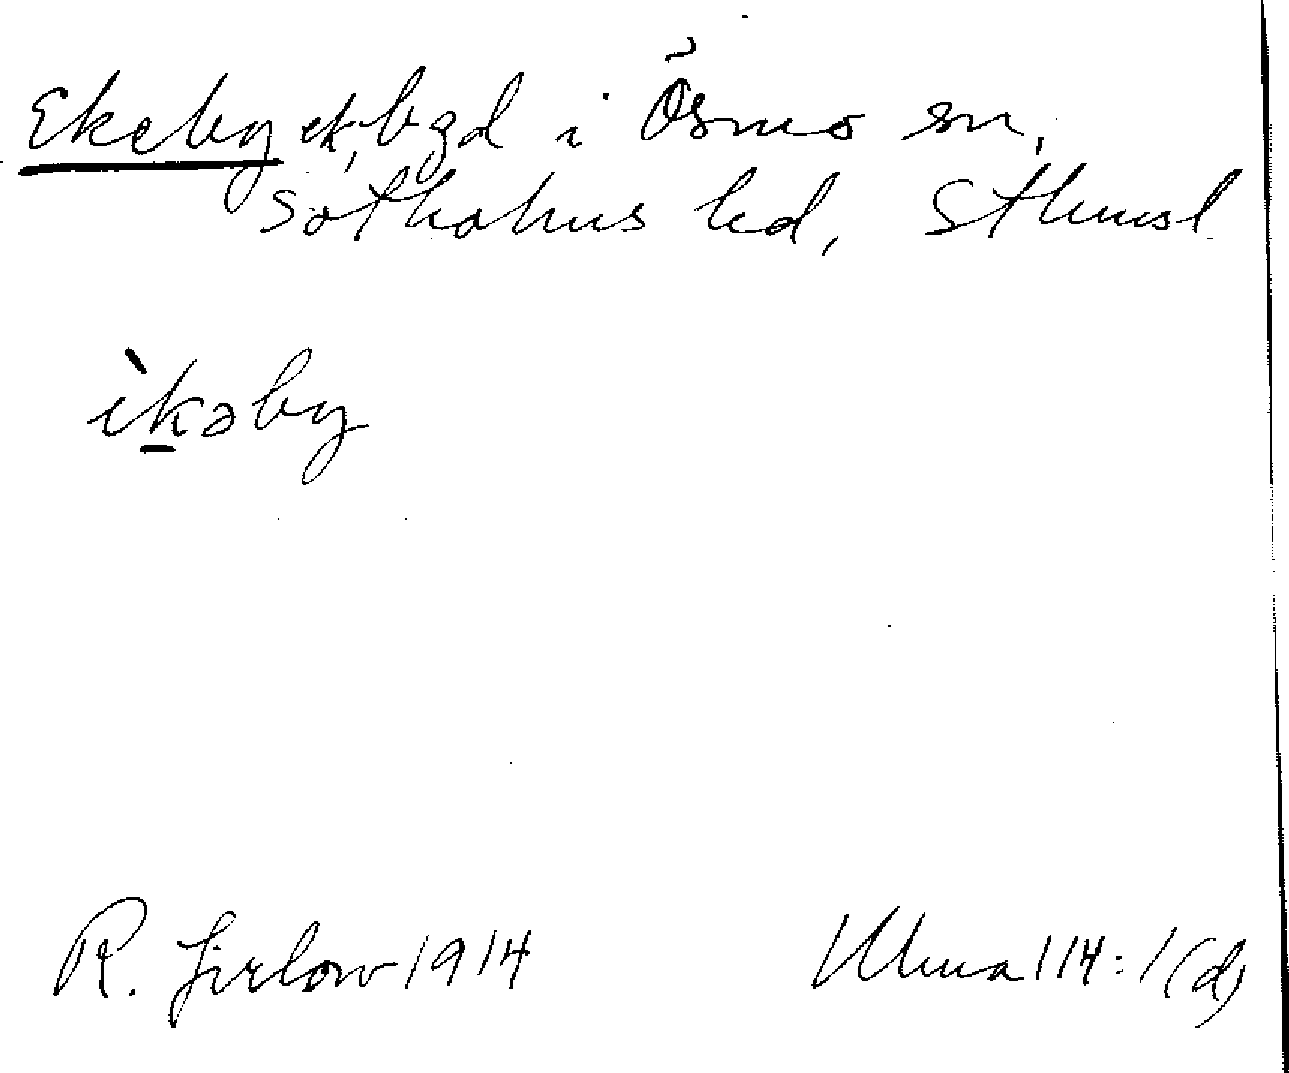 Ekeby ek, bgd i Ösmo sn,
Sotholms hd, Sthmsl
ìkəby
R. Jirlow 1914 Ulma 114:1(d)